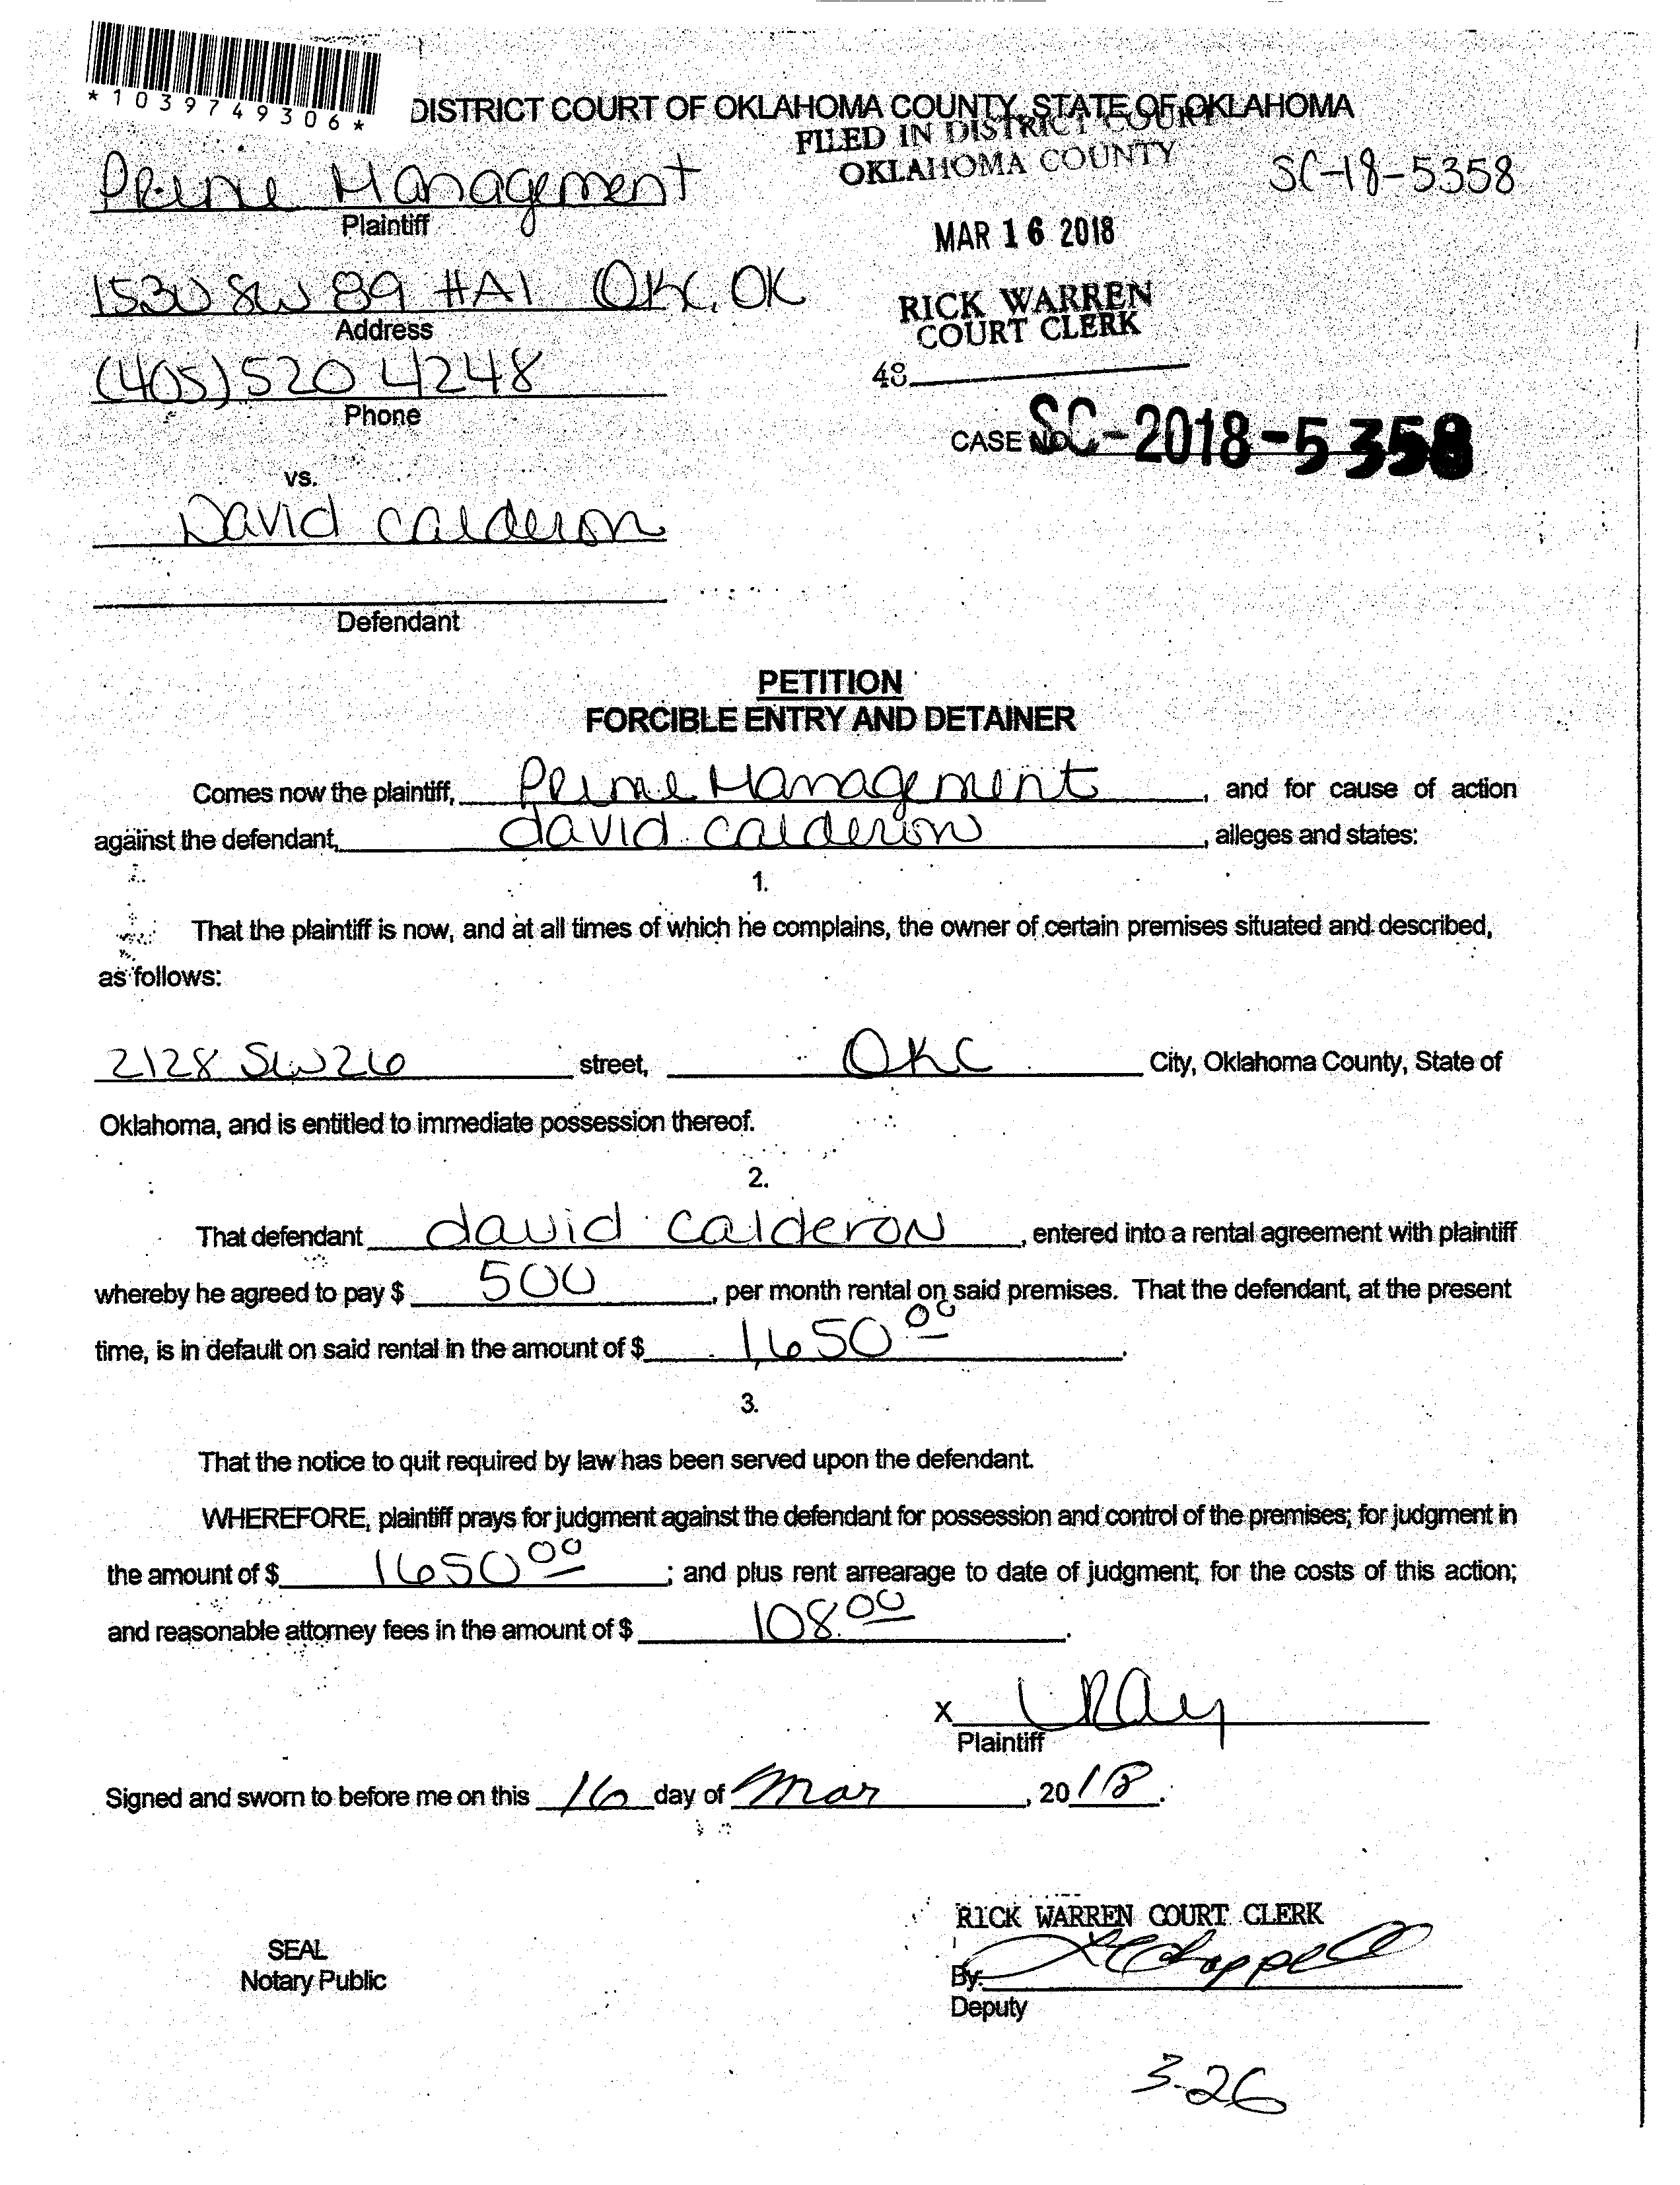 *1039749306*
DISTRICT COURT OF OKLAHOMA COUNTY, STATE OF OKLAHOMA
FILED IN DISTRICT COURT
OKLAHOMA COUNTY
SC-18-5358
Prime Management
Plaintiff
MAR 16 2018
1530 SW 89 #A1 OKC, OK
Address
RICK WARREN
COURT CLERK
(405) 520 4248
Phone
48
CASE NO. SC-2018-5358
vs.
David Calderon
Defendant
PETITION
FORCIBLE ENTRY AND DETAINER
Comes now the plaintiff, Prime Management, and for cause of action
against the defendant, david calderon, alleges and states:
1.
That the plaintiff is now, and at all times of which he complains, the owner of certain premises situated and described,
as follows:
2128 SW 26 street, OKC City, Oklahoma County, State of
Oklahoma, and is entitled to immediate possession thereof.
2.
That defendant david calderon, entered into a rental agreement with plaintiff
whereby he agreed to pay $ 500, per month rental on said premises. That the defendant, at the present
time, is in default on said rental in the amount of $ 1,650 00.
3.
That the notice to quit required by law has been served upon the defendant.
WHEREFORE, plaintiff prays for judgment against the defendant for possession and control of the premises; for judgment in
the amount of $ 1650 00; and plus rent arrearage to date of judgment; for the costs of this action;
and reasonable attorney fees in the amount of $ 108.00.
X LRay
Plaintiff
Signed and sworn to before me on this 16 day of Mar, 2018.
RICK WARREN COURT CLERK
SEAL
Notary Public
By: Chappell
Deputy
3-26